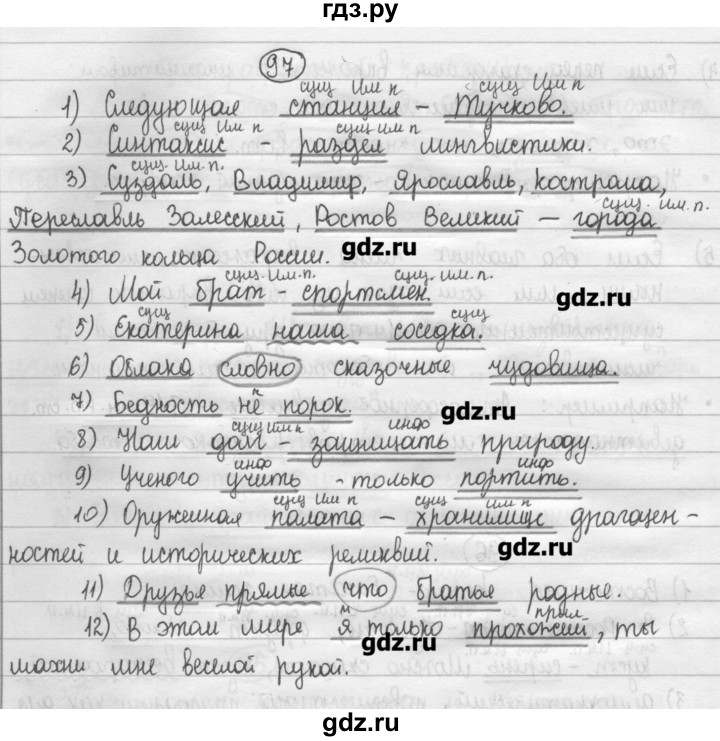 гдз.ру
97
сущ Им п сущ Им п
1) Следующая станция - Тучково.
сущ Им п сущ им п
2) Синтаксис - раздел лингвистики.
сущ. Им. п.
3) Суздаль, Владимир, Ярославль, Кострома,
сущ. им. п.
Переславль Залесский, Ростов Великий - города
Золотого кольца России. gdz.ru
сущ. Им. п. сущ. им. п.
4) Мой брат - спортсмен. gdz.ru
сущ сущ
5) Екатерина наша соседка.
6) Облака словно сказочные чудовища.
п
7) Бедность не порок. gdz.ru
сущ Им п инф
8) Наш долг - защищать природу.
инф инф
9) Ученого учить - только портить.
сущ Им п сущ им п
10) Оружейная палата - хранилище драгоцен-
ностей и исторических реликвий. gdz.ru
11) Друзья прямые что братья родные.
м прил
12) В этом мире я только прохожий, ты
махни мне веселой рукой. gdz.ru
gdz.ru